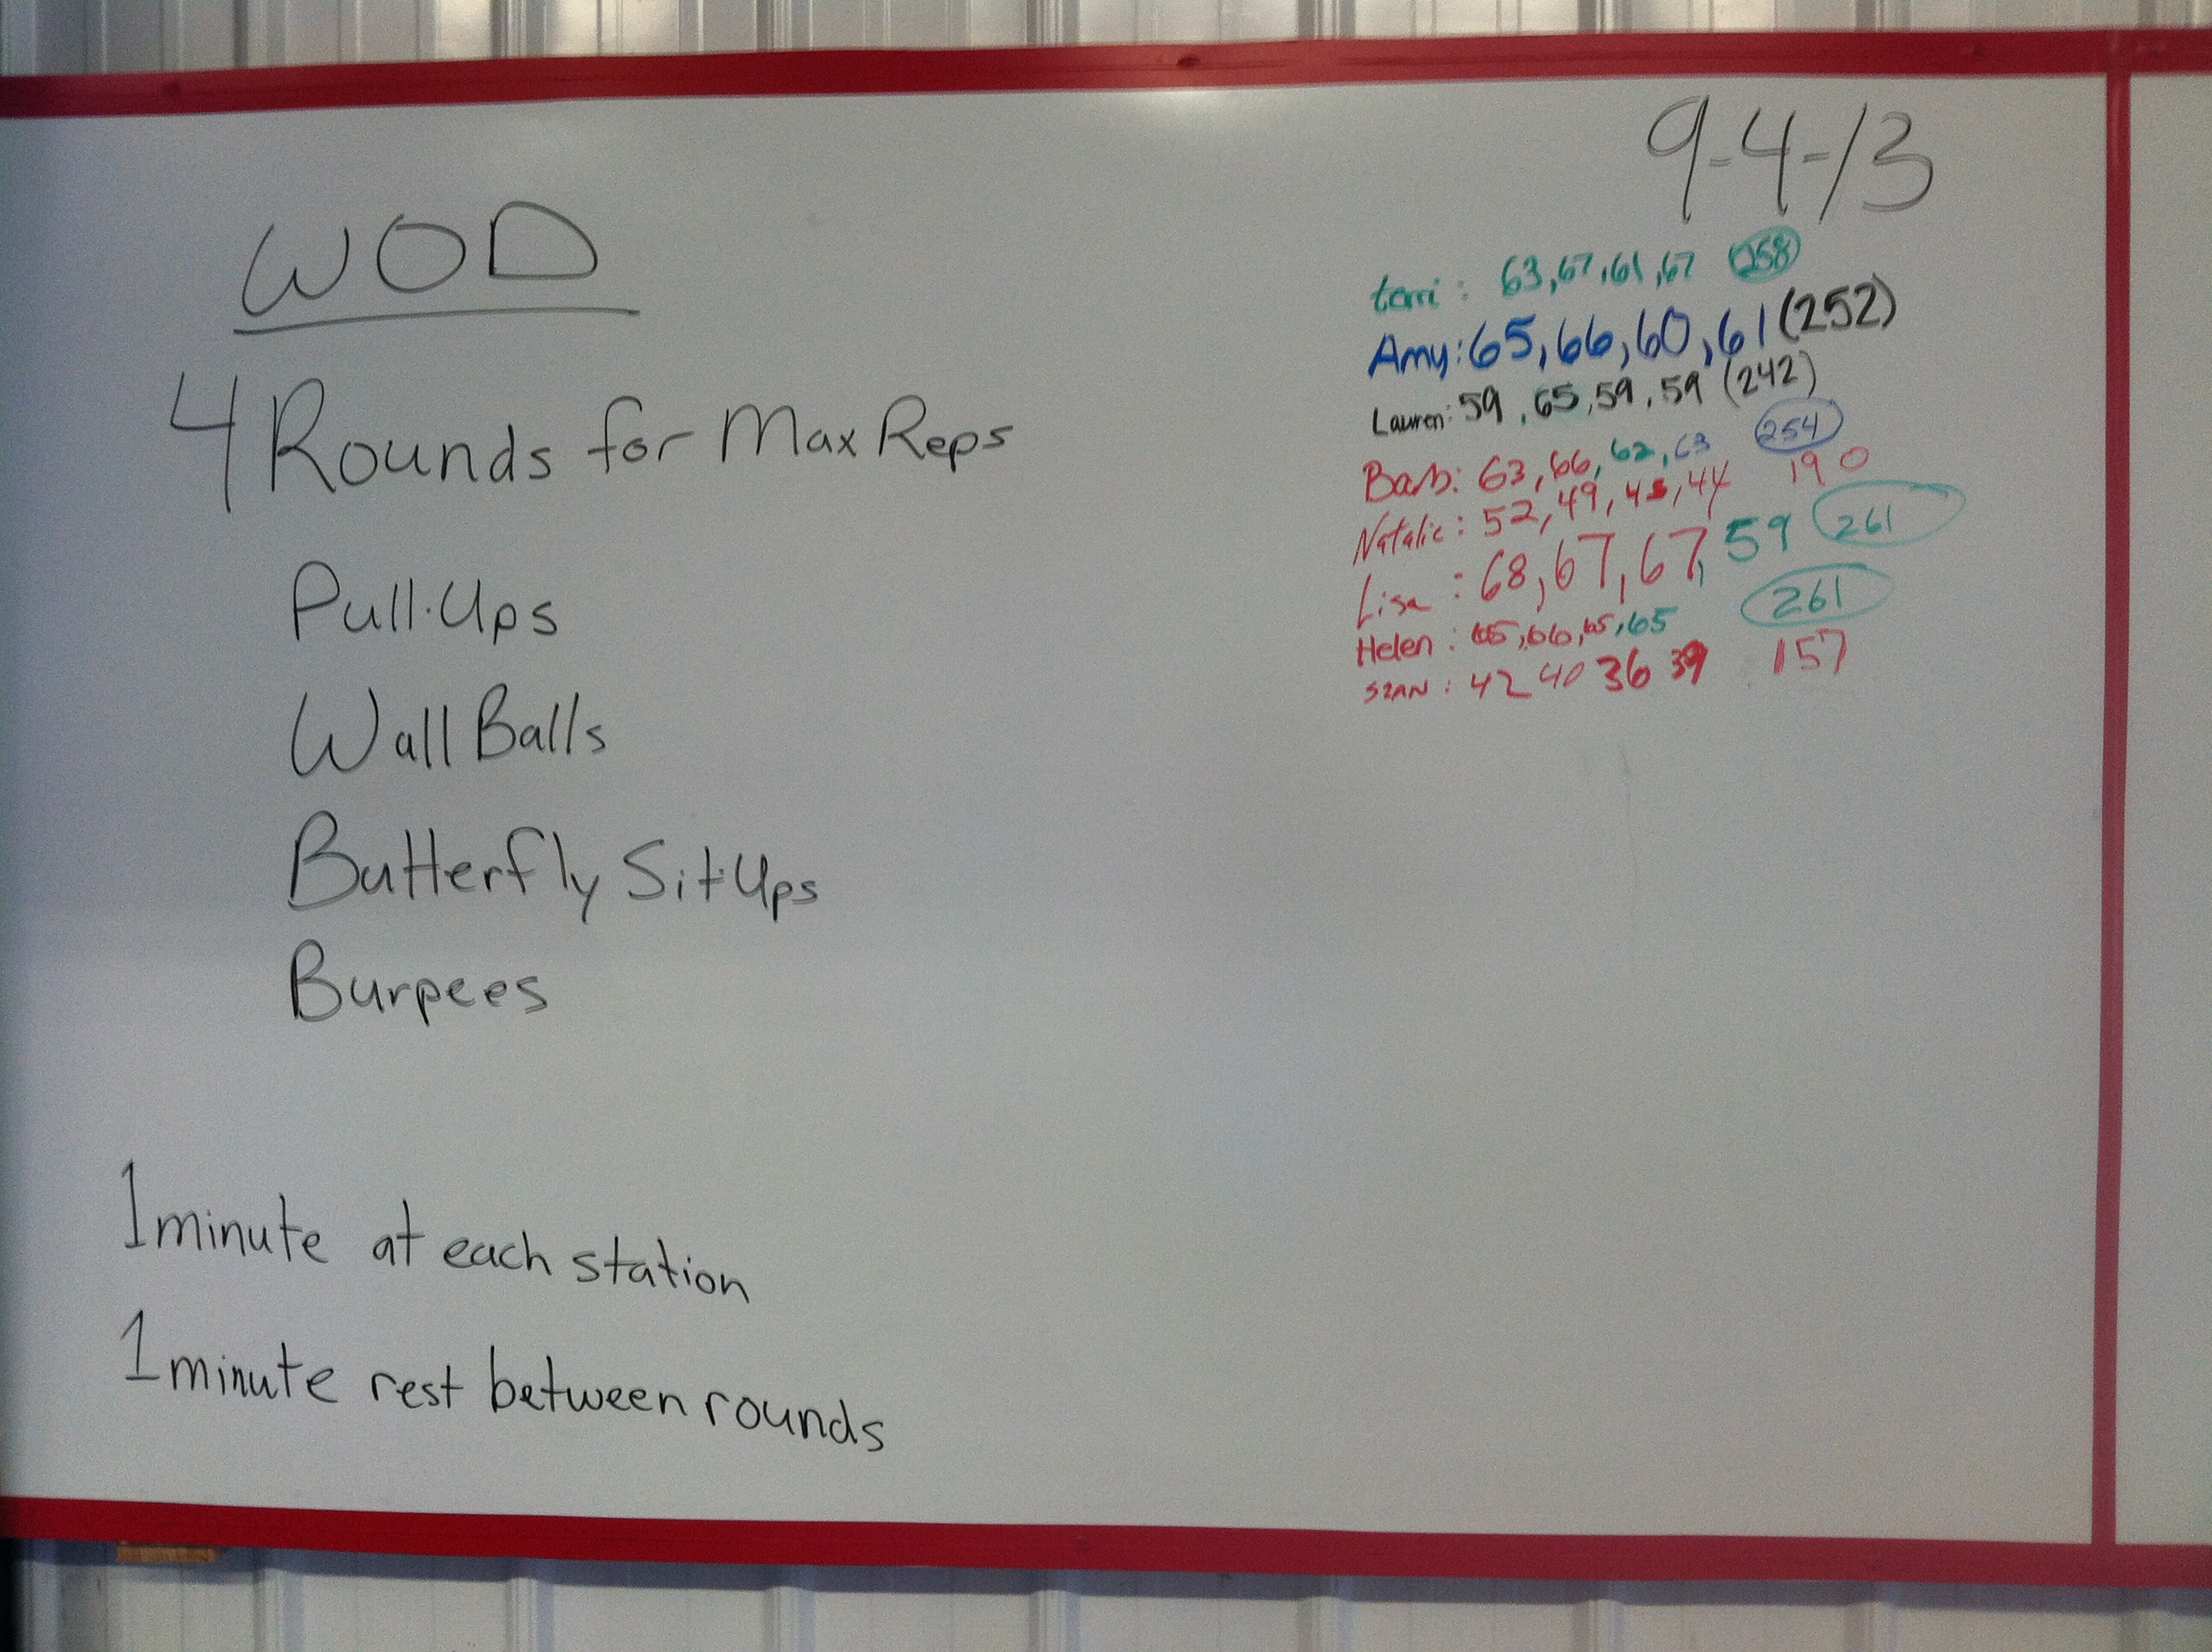 9-4-13
WOD
4 Rounds for Max Reps
Pull-Ups
Wall Balls
Butterfly Sit-Ups
Burpees
1 minute at each station
1 minute rest between rounds
terri: 63, 67, 61, 67 258
Amy: 65, 66, 60, 61 (252)
Lauren: 59, 65, 59, 59 (242)
Barb: 63, 66, 62, 63 254
Natalie: 52, 49, 45, 44 190
Lisa: 68, 67, 67, 59 261
Helen: 65, 66, 65, 65 261
42 40 36 39 157